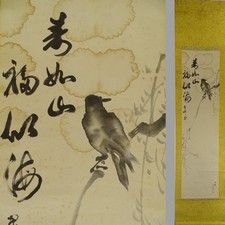 寿如山
福似海